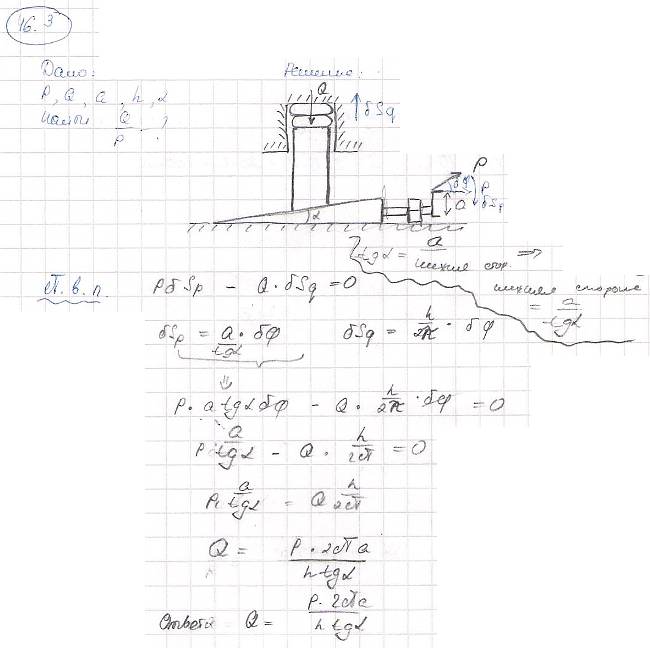 46.3
Дано:
Решение:
P, Q, a, h, α
Найти Q/P - ?
Q
δSq
P
δφ
P
a
δSp
α
tgα = a/нижняя стор. ⇒
нижняя сторона
= a/tgα
П. в. п.
PδSp - Q·δSq = 0
δSp = a/tgα · δφ   δSq = h/2π · δφ
⇓
P · a tgα δφ - Q · h/2π · δφ = 0
P a/tgα - Q · h/2π = 0
P · a/tgα = Q h/2π
Q = P·2πa/h tgα
Ответ: Q = P·2πa/h tgα